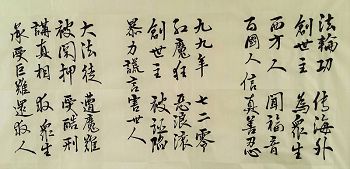 法輪功 传海外
創世主 為眾生
西方人 聞福音
百國人 信真善忍
九九年 七二零
红魔狂 惡浪滚
創世主 被誣陷
暴力謊言害世人
大法徒 遭魔難
被関押 受酷刑
講真相 救眾生
承受巨難還救人